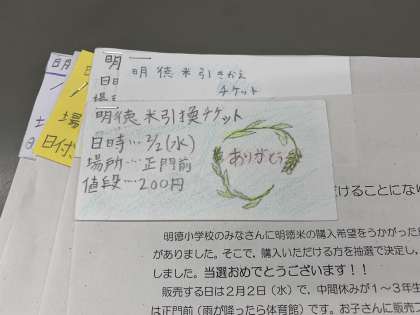 明徳米引きかえ
チケット
明徳米引換チケット
日時…2/2(水)
場所…正門前
値段…200円
ありがとう
明
日
場
日付
けることにな
明徳小学校のみなさんに明徳米の購入希望をうかがった
がありました。そこで、購入いただける方を抽選で決定し、
しました。当選おめでとうございます！！
販売する日は2月2日（水）で、中間休みが1〜3年生
は正門前（雨が降ったら体育館）です。お子さんに販売